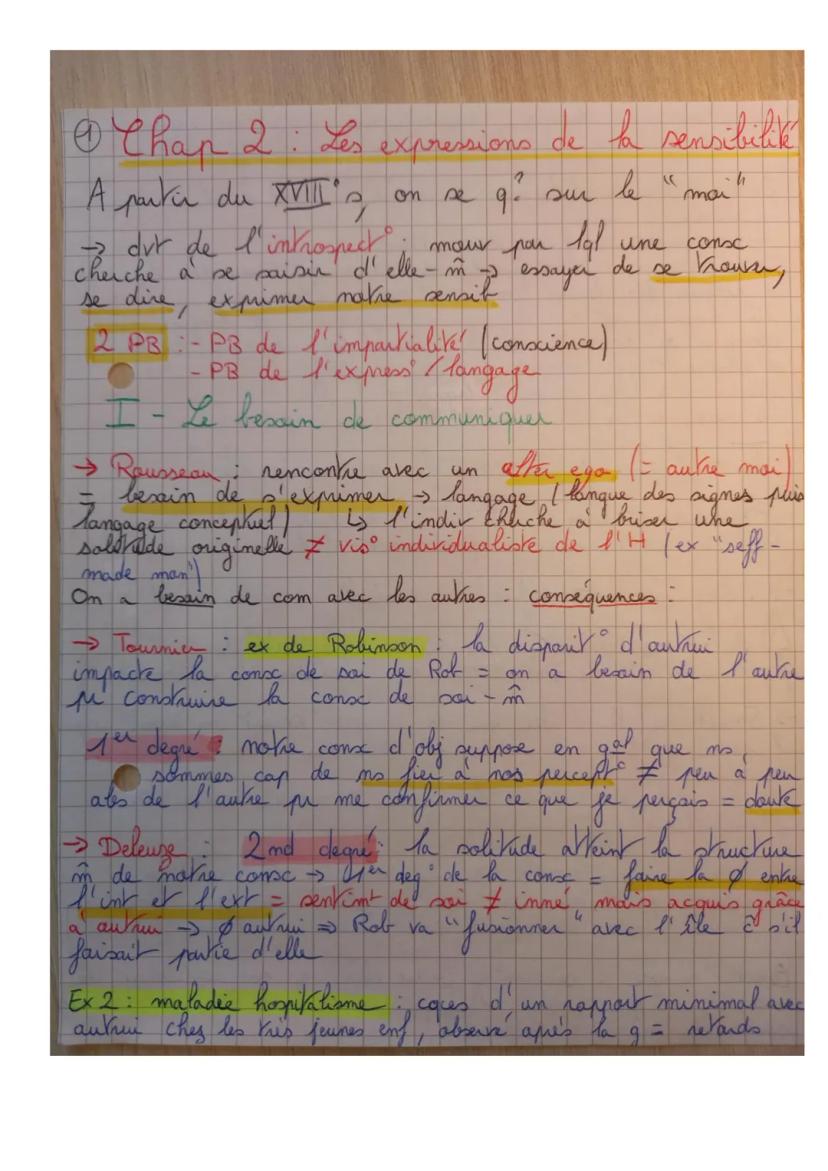 ① Chap 2 : Les expressions de la sensibilité
A partir du XVIII°s, on se q? sur le "moi"
→ dvt de l'introspect° : mouv par lql une consc
cherche à se saisir d'elle-m̂ → essayer de se trouver,
se dire, exprimer notre sensit
2 PB : - PB de l'impartialité (conscience)
- PB de l'express°/langage
I - Le besoin de communiquer
→ Rousseau : rencontre avec un alter ego (= autre moi)
= besoin de s'exprimer → langage (langue des signes puis
langage conceptuel) ↳ l'indiv cherche à briser une
solitude originelle ≠ vis° individualiste de l'H (ex "seff-
made man")
On a besoin de com avec les autres : conséquences :
→ Tournier : ex de Robinson : la disparit° d'autrui
impacte la consc de soi de Rob = on a besoin de l'autre
pr construire la consc de soi-m̂
1er degré : notre consc d'obj suppose en gal que ns
sommes cap de ns fier à nos percept° ≠ peu à peu
abs de l'autre pr me confirmer ce que je perçois = doute
→ Deleuze : 2nd degré : la solitude atteint la structure
m̂ de notre consc → 1er deg° de la consc = faire la ∅ entre
l'int et l'ext = sentimt de soi ≠ inné mais acquis grâce
à autrui → ∅ autrui ⇒ Rob va "fusionner" avec l'île ĉ s'il
faisait partie d'elle
Ex 2 : maladie hospitalisme : cqces d'un rapport minimal avec
autrui chez les très jeunes enf, observé après la g = retards